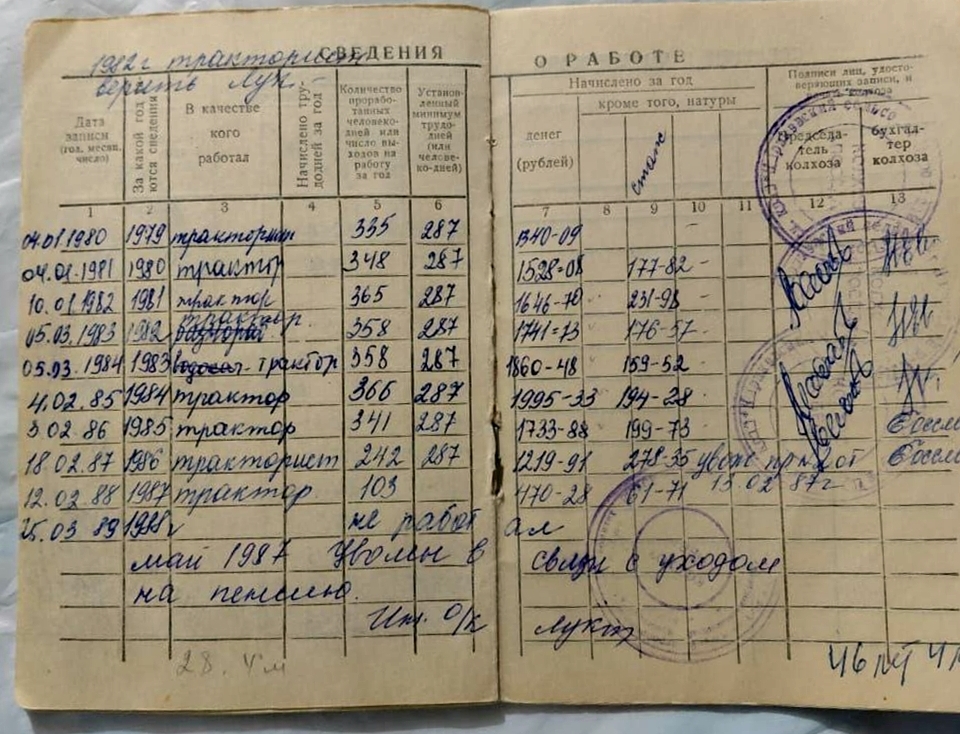 СВЕДЕНИЯ О РАБОТЕ
1982г тракторист
верить Лук.
Дата записи (год, месяц, число)
За какой год
ются сведения
В качестве кого работал
Начислено трудодней за год
Количество проработанных человекодней или число выходов на работу за год
Установленный минимум трудодней (или человеко-дней)
Начислено за год
денег (рублей)
кроме того, натуры
стаж
Подписи лиц, удостоверяющих записи, и
колхоза
Председатель колхоза
бухгалтер колхоза
1 2 3 4 5 6 7 8 9 10 11 12 13
04.01.1980 1979 тракторист 335 287 1340-09 -
04.01.1981 1980 трактор 348 287 1528=08 177-82 -
10.01.1982 1981 трактор 365 287 1646-70 231-98 -
трактор.
05.03.1983 1982 358 287 1741=73 176-57 -
05.03.1984 1983 водокач. трактор 358 287 1860-48 159-52 -
4.02.85 1984 трактор 366 287 1995-33 194-28 -
3 02 86 1985 трактор 341 287 1733-88 199-73 -
18.02.87 1986 тракторист 242 287 1219-91 278-35 увол пр №2 от
12.02.88 1987 трактор 103 470-28 61-71 13.02 87г
25.03 89 1988г не работал
май 1987 Уволен в связи с уходом
на пенсию.
Ин. О/К Лукт
28. 4м
46 лет 4м